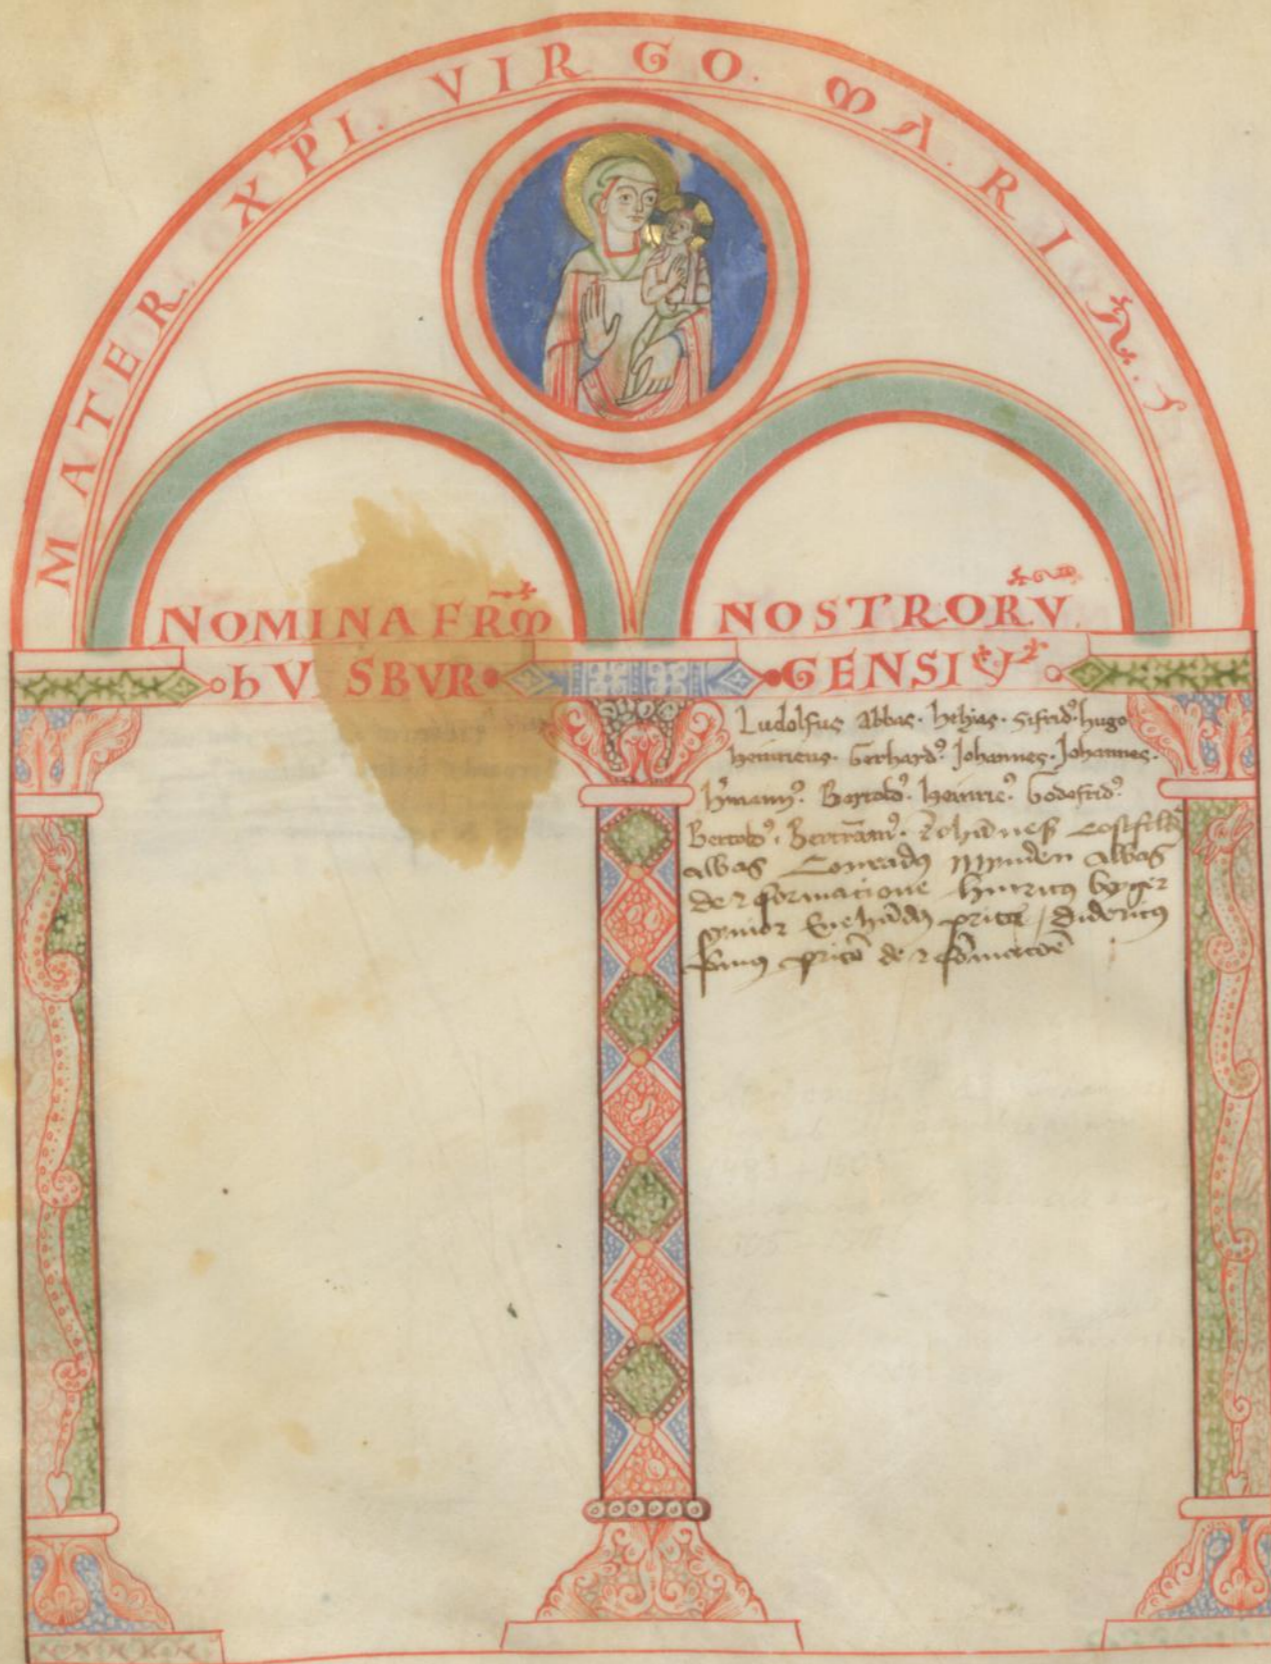 MATER. XP̅I. VIRGO. MARIA.
NOMINA FR̅M NOSTRORV̅
hVSBVR GENSIV̅
Ludolfus abbas. helyas. Sifrid᷒. hugo
heinricus. Gerhard᷒. Johannes. Johannes.
Bertold᷒. heinric᷒. Godefrid᷒.
Bertold᷒. Bertra̅m᷒. Joha̅nes
abbas Conradꝰ mynden abbas
de reformacione hinricꝰ
senior prior didericꝰ
prior de reformac̅oe̅